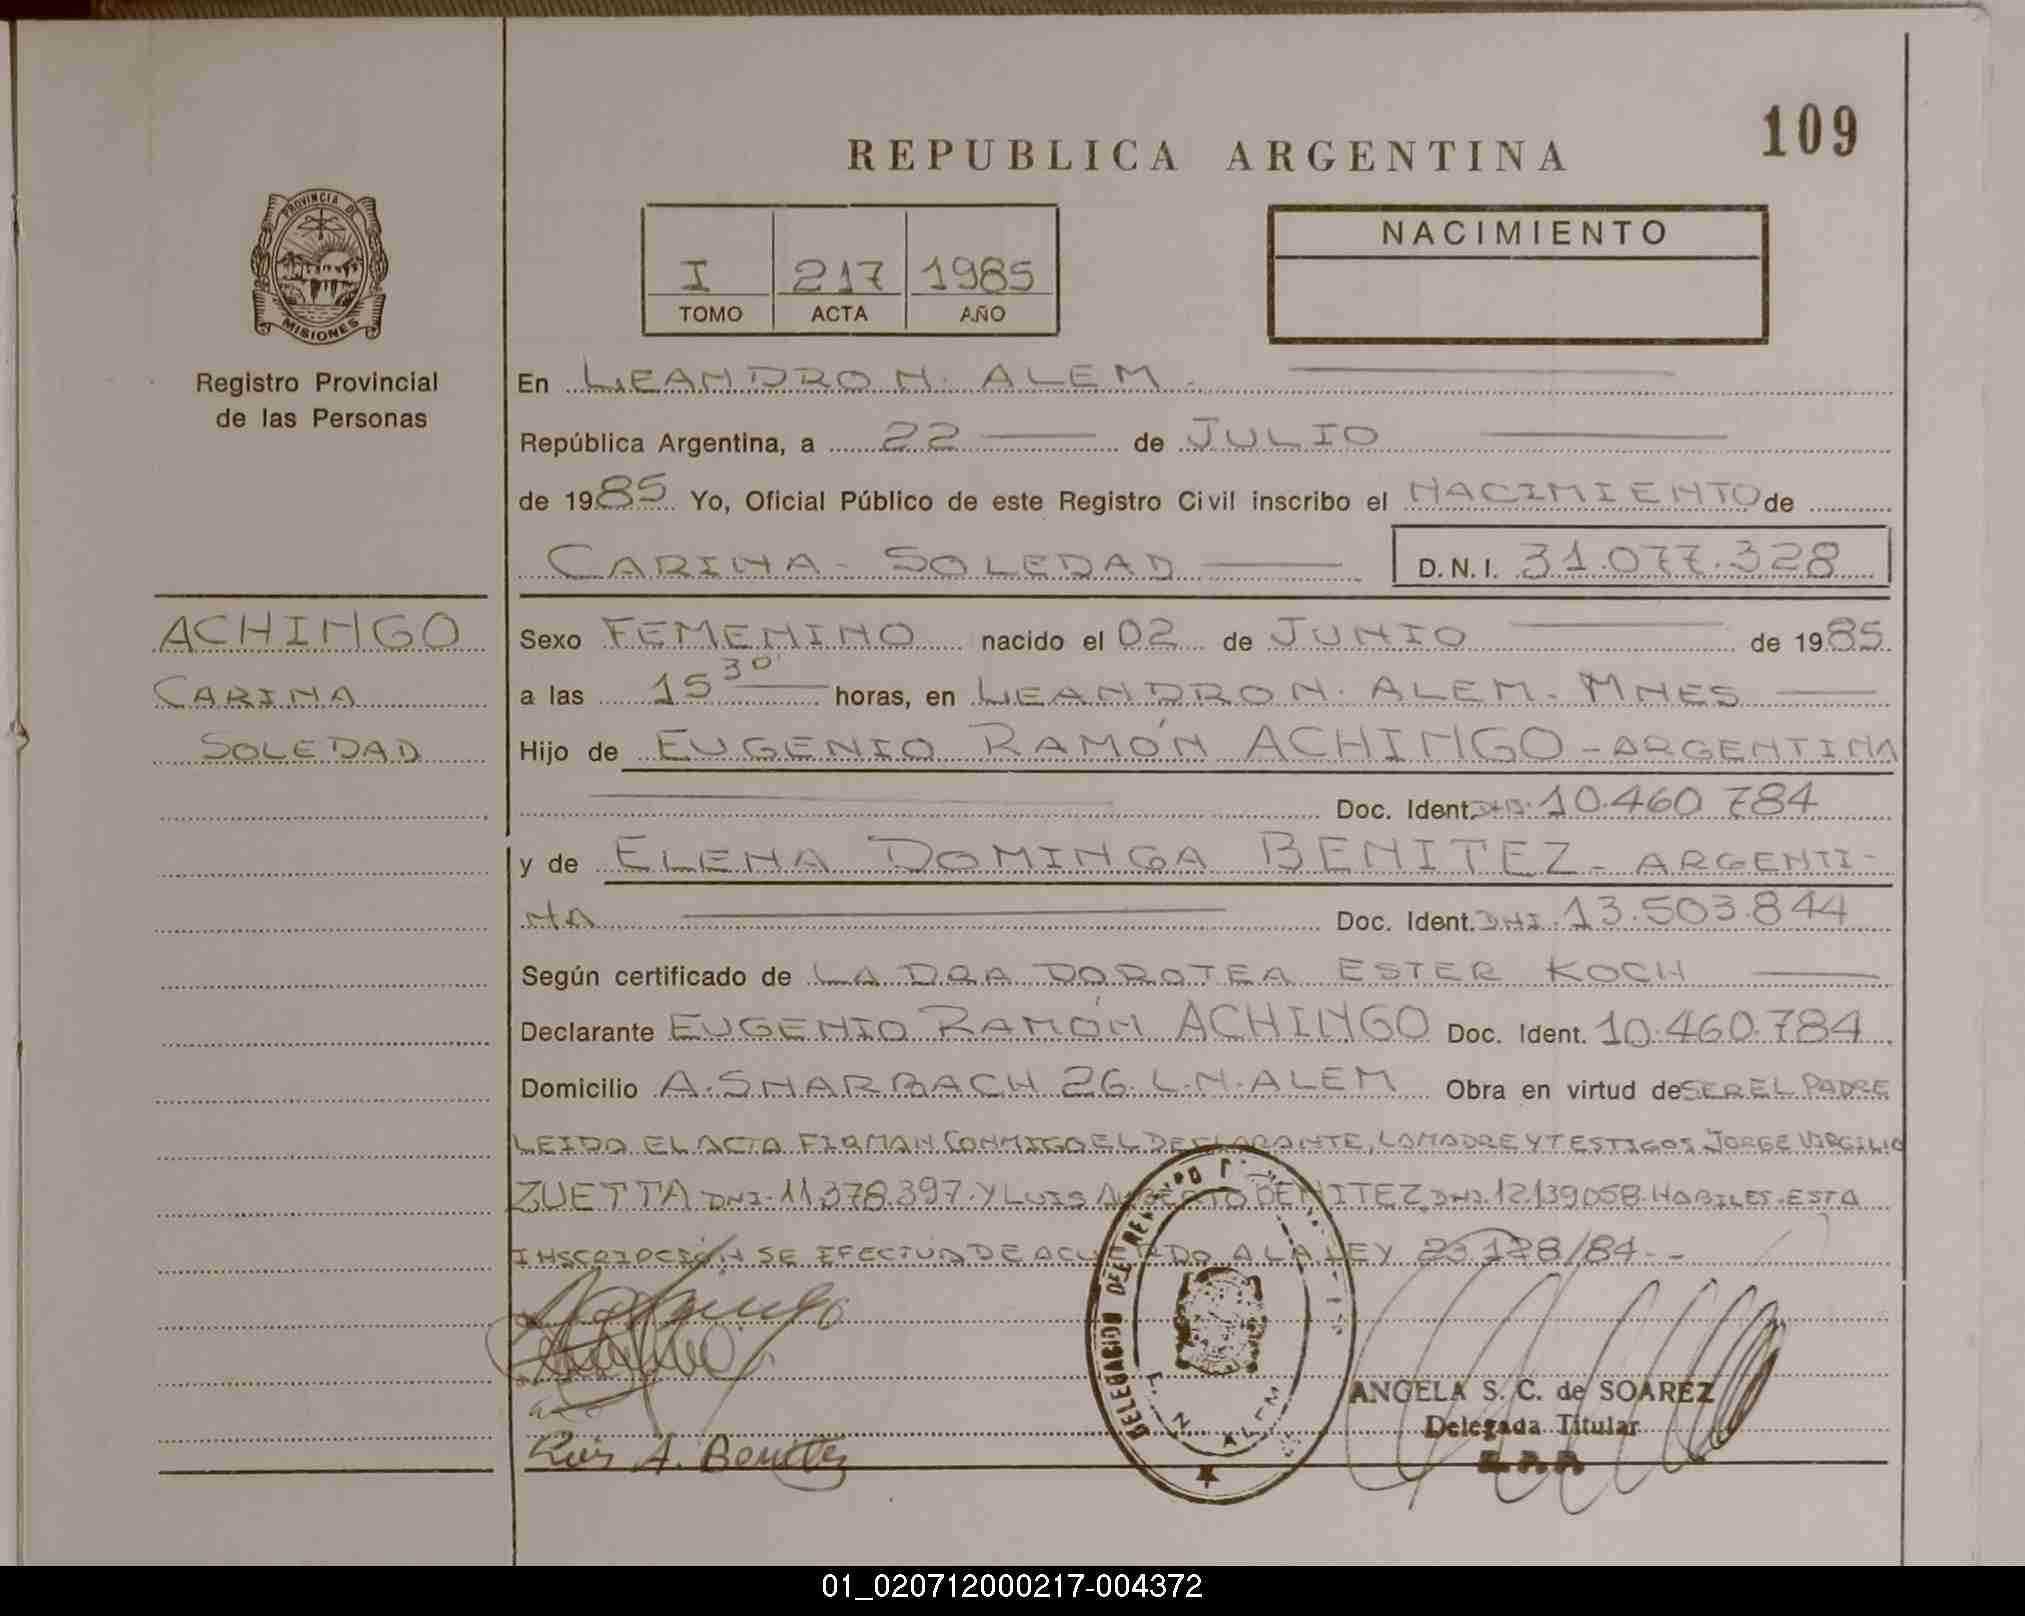 109
REPUBLICA ARGENTINA
PROVINCIA DE
MISIONES
Registro Provincial
de las Personas
I 217 1985
TOMO ACTA AÑO
NACIMIENTO
En LEANDRO N. ALEM.
República Argentina, a 22 de JULIO
de 1985 Yo, Oficial Público de este Registro Civil inscribo el NACIMIENTO de
CARINA - SOLEDAD D.N.I. 31.077.328
ACHINGO
CARINA
SOLEDAD
Sexo FEMENINO nacido el 02 de JUNIO de 1985.
a las 15 30' horas, en LEANDRO N. ALEM - MNES
Hijo de EUGENIO RAMÓN ACHINGO - ARGENTINA
Doc. Ident. DNI. 10.460.784
y de ELENA DOMINGA BENITEZ - ARGENTI-
NA Doc. Ident. DNI. 13.503.844
Según certificado de LA DRA DOROTEA ESTER KOCH
Declarante EUGENIO RAMÓN ACHINGO Doc. Ident. 10.460.784
Domicilio A. SHARBACH 26. L.N. ALEM Obra en virtud de SER EL PADRE
LEIDA EL ACTA FIRMAN CONMIGO EL DECLARANTE, LA MADRE Y TESTIGOS, JORGE VIRGILIO
ZUETTA DNI. 11.378.397. Y LUIS ALBERTO BENITEZ, DNI. 12.139058. HABILES. ESTA
INSCRIPCIÓN SE EFECTUA DE ACUERDO A LA LEY 23.128/84.-
DELEGACION DEL
L. N. ALEM
ANGELA S. C. de SOAREZ
Delegada Titular
Luis A. Benitez
01_020712000217-004372